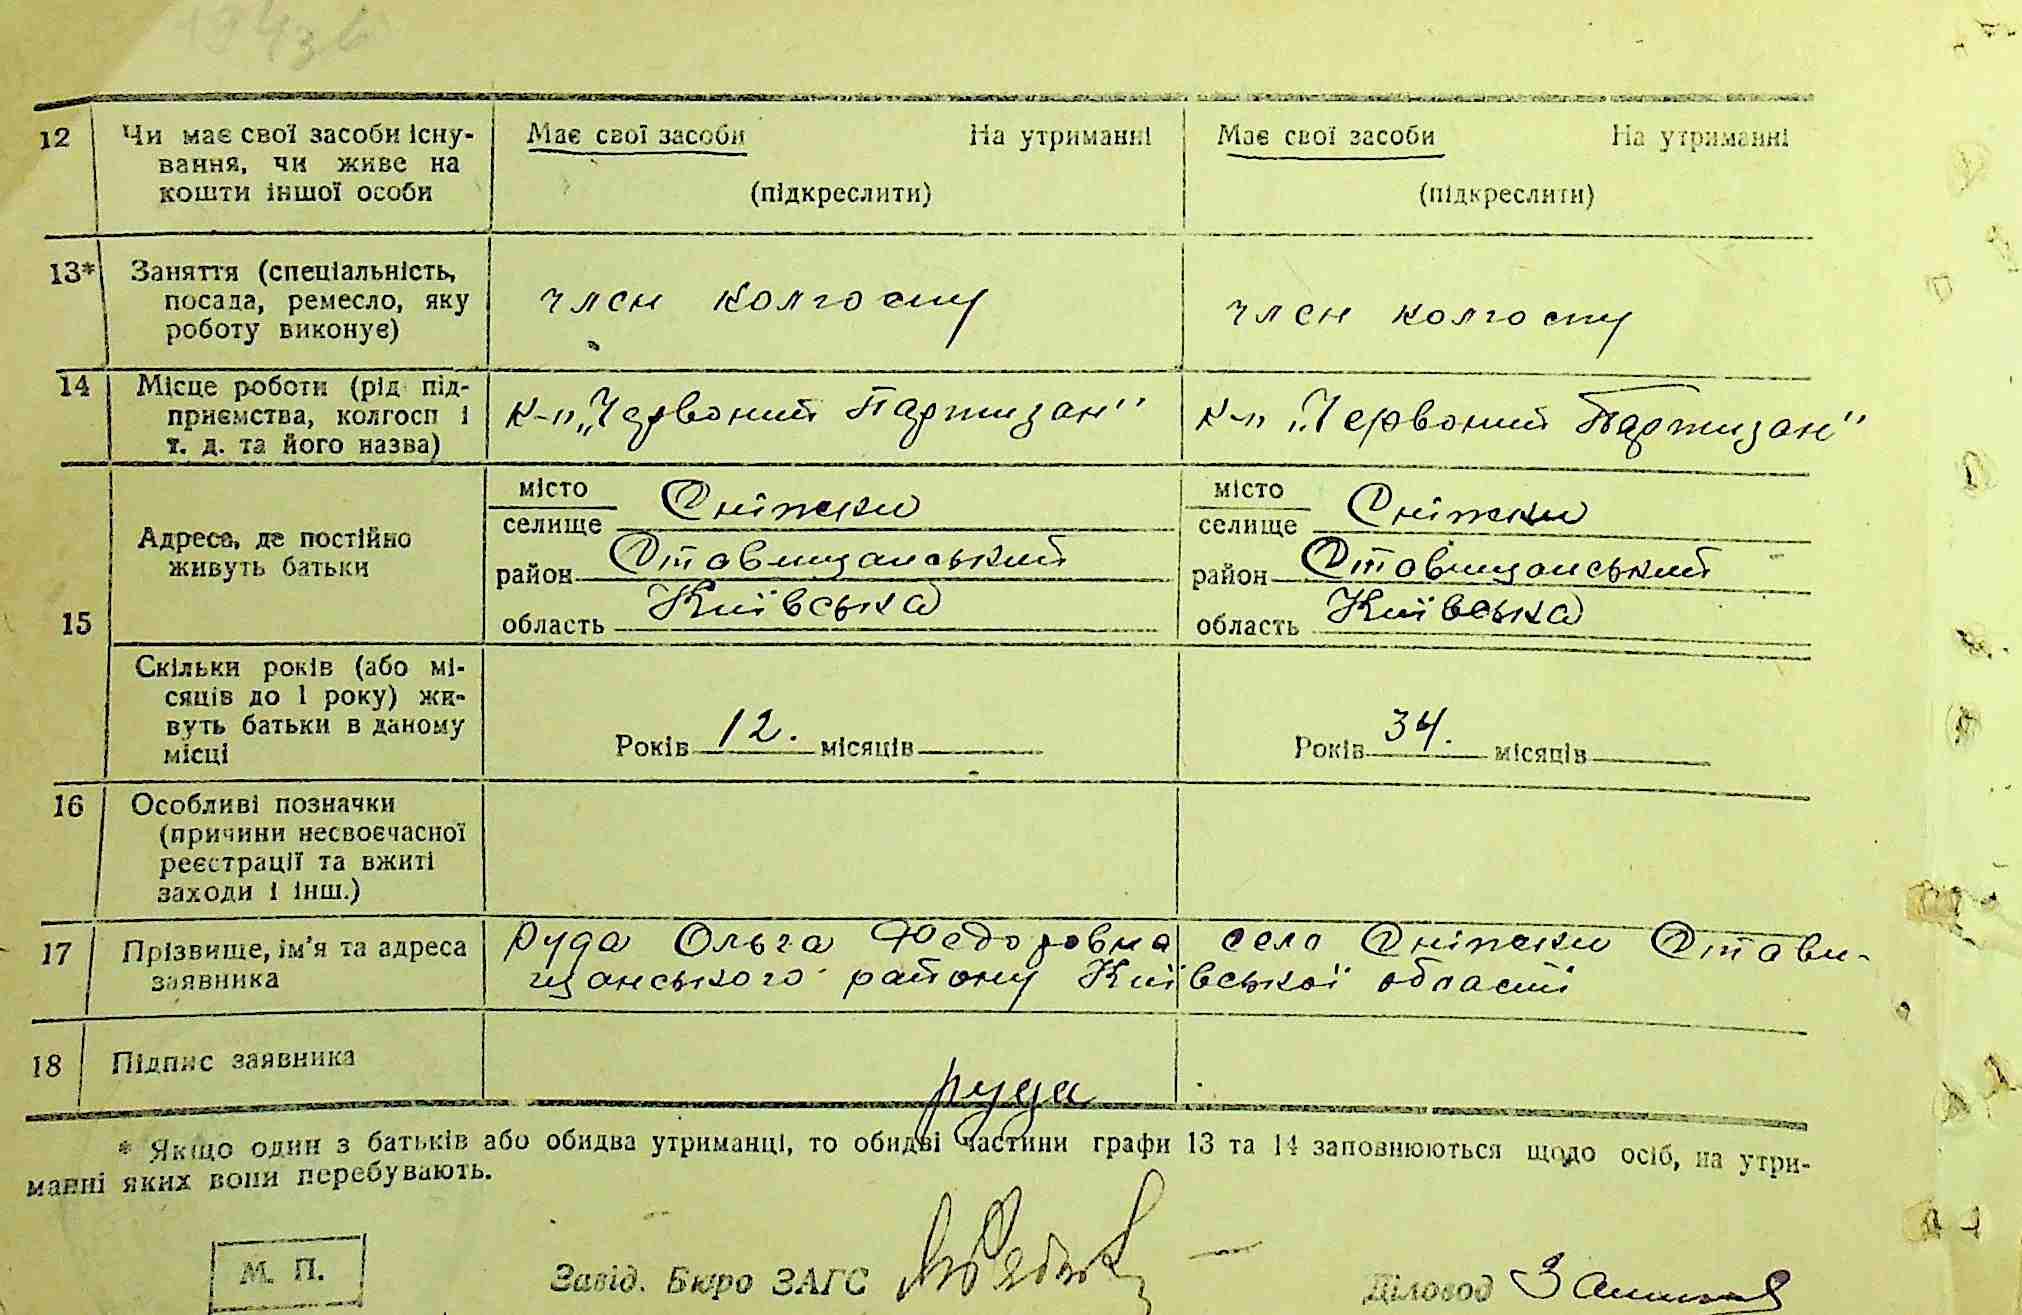 12 Чи має свої засоби існу- Має свої засоби На утриманні Має свої засоби На утриманні
вання, чи живе на
кошти іншої особи (підкреслити) (підкреслити)
13* Заняття (спеціальність,
посада, ремесло, яку член колгоспу член колгоспу
роботу виконує)
14 Місце роботи (рід під-
приємства, колгосп і к-п „Червоний Партизан" к-п „Червоний Партизан"
т. д. та його назва)
місто Сніжки місто Сніжки
селище селище
Адреса, де постійно
живуть батьки район Ставищанський район Ставищанський
15 область Київська область Київська
Скільки років (або мі-
сяців до 1 року) жи-
вуть батьки в даному
місці Років 12. місяців Років 34. місяців
16 Особливі позначки
(причини несвоєчасної
реєстрації та вжиті
заходи і інш.)
17 Прізвище, ім'я та адреса Руда Ольга Федоровна село Сніжки Стави-
заявника щанського району Київської області
18 Підпис заявника Руда
* Якщо один з батьків або обидва утриманці, то обидві частини графи 13 та 14 заповнюються щодо осіб, на утри-
манні яких вони перебувають.
М. П. Завід. Бюро ЗАГС Діловод